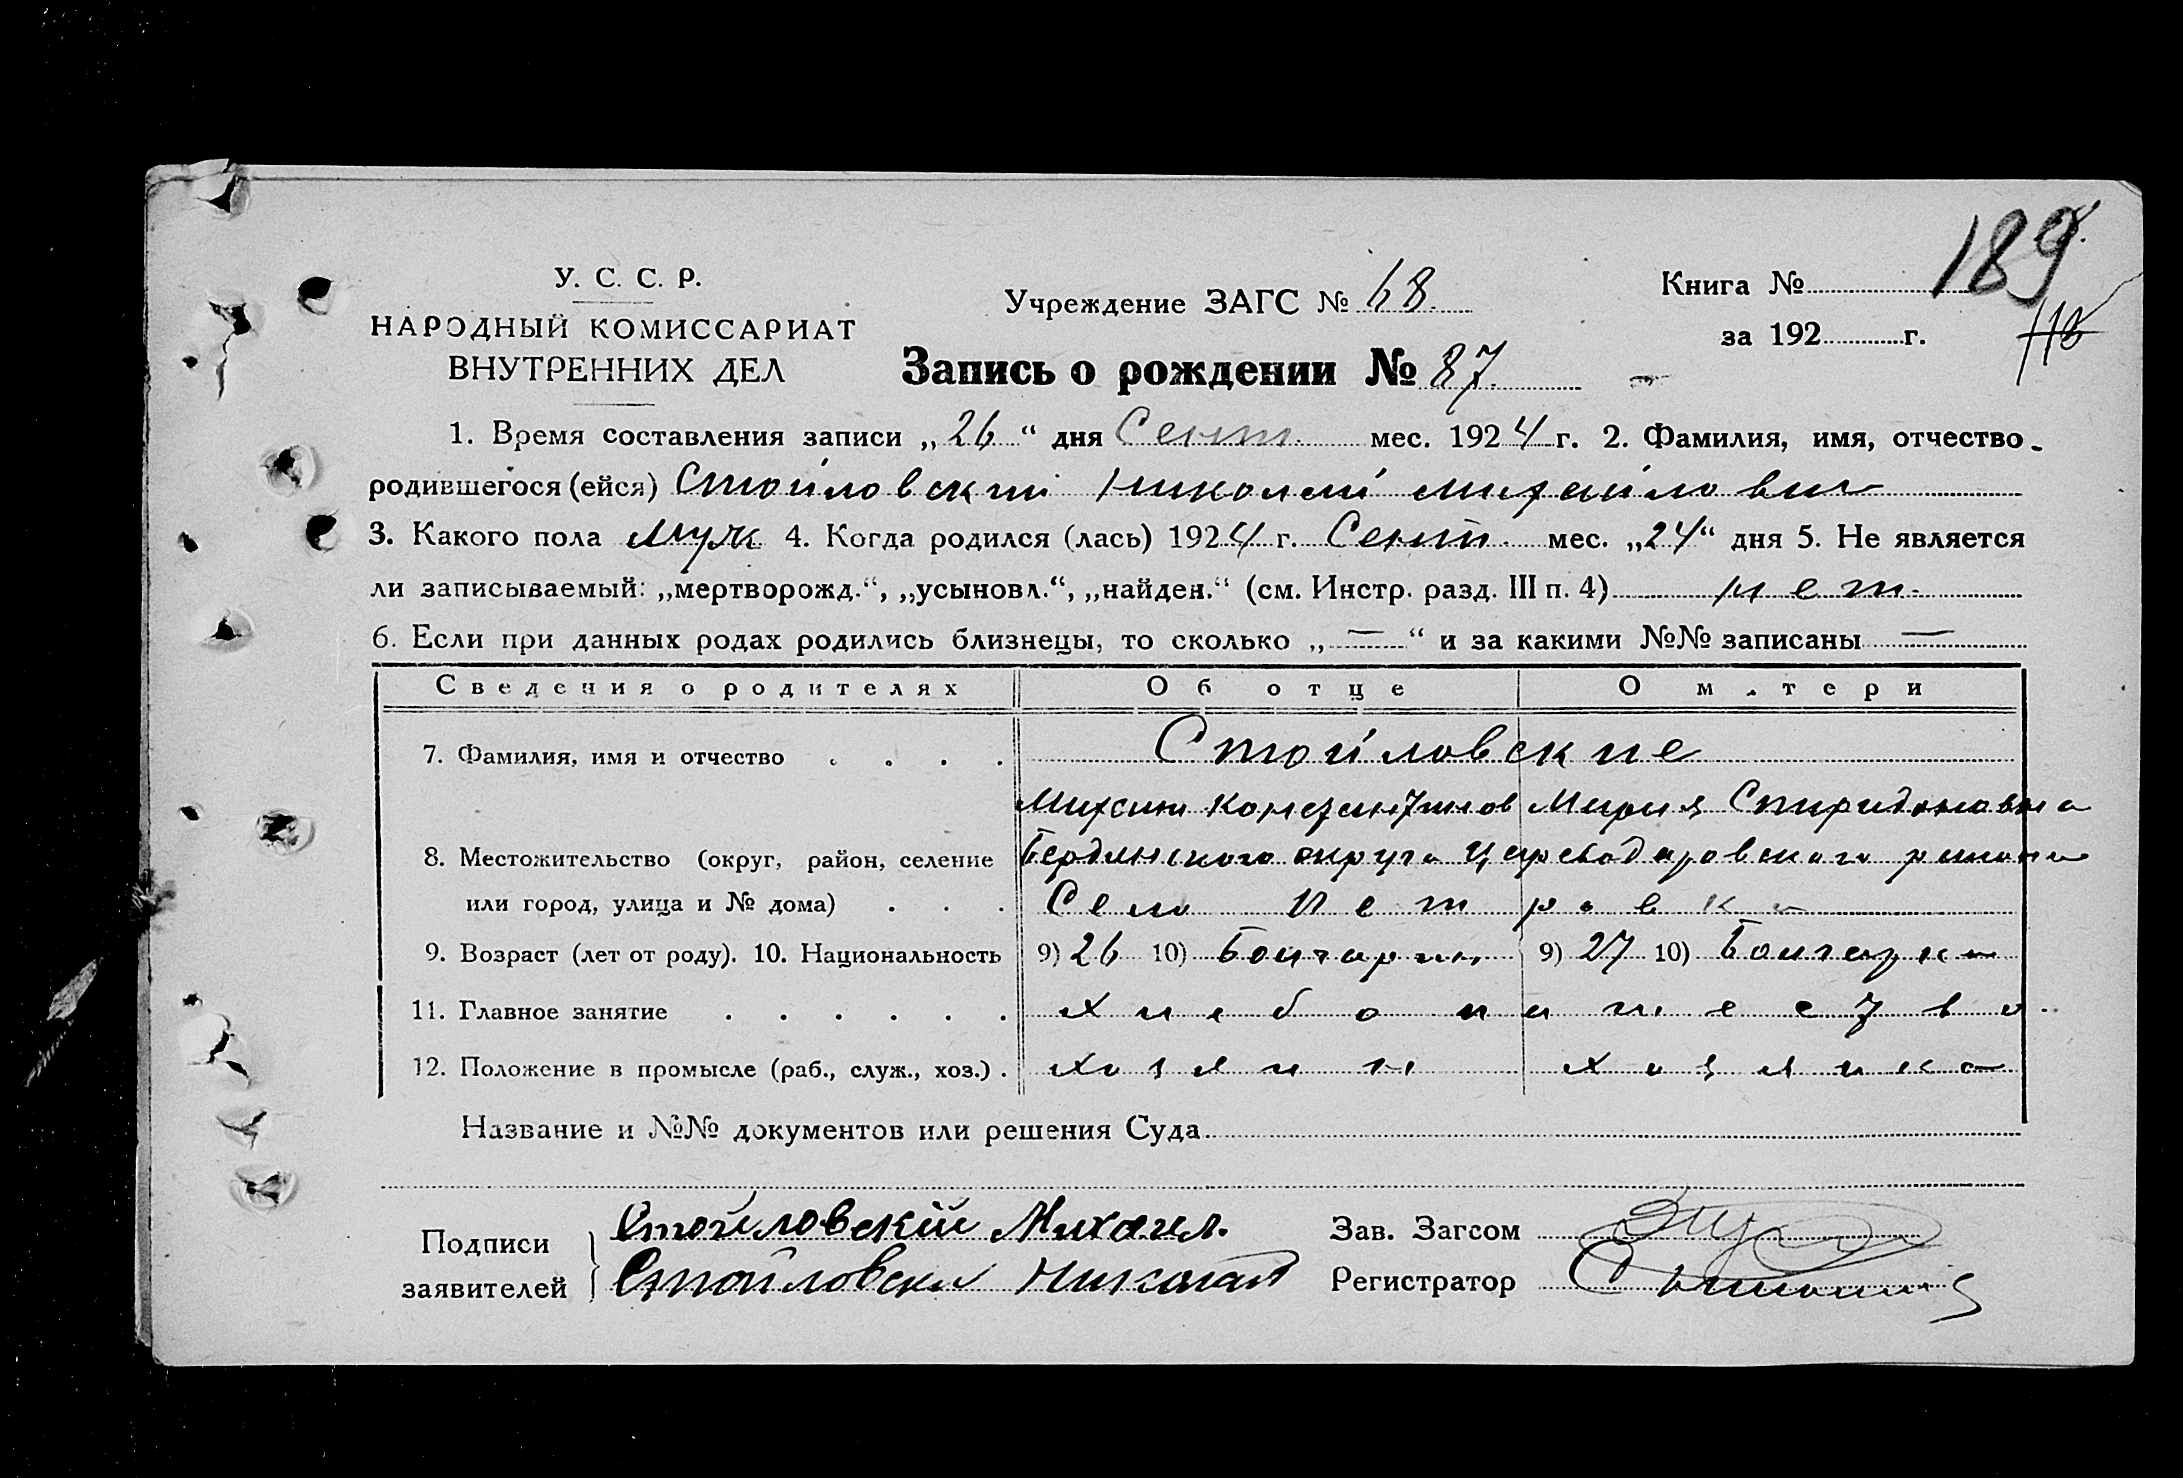 189
118
У. С. С. Р.
НАРОДНЫЙ КОМИССАРИАТ
ВНУТРЕННИХ ДЕЛ
Учреждение ЗАГС № 68.
Книга №
за 192 г.
Запись о рождении № 87.
1. Время составления записи „26“ дня Сент. мес. 1924 г. 2. Фамилия, имя, отчество
родившегося (ейся) Стойловский Николай Михайлович
3. Какого пола Муж 4. Когда родился (лась) 1924 г. Сент. мес. „24“ дня 5. Не является
ли записываемый: „мертворожд.“, „усыновл.“, „найден.“ (см. Инстр. разд. III п. 4) нет.
6. Если при данных родах родились близнецы, то сколько „—“ и за какими №№ записаны —
Сведения о родителях Об отце О матери
7. Фамилия, имя и отчество . . . . Стойловские
Михаил Константинов Мария Спиридоновна
8. Местожительство (округ, район, селение Бердянского округа Цареводаровского района
или город, улица и № дома) . . . Село Петровка
9. Возраст (лет от роду). 10. Национальность 9) 26 10) Болгарин 9) 27 10) Болгарка
11. Главное занятие . . . . . . Хлебопашество.
12. Положение в промысле (раб., служ., хоз.) . Хозяин Хозяика
Название и №№ документов или решения Суда
Подписи
заявителей
Стойловскій Михаил.
Стойловски Николай
Зав. Загсом
Регистратор